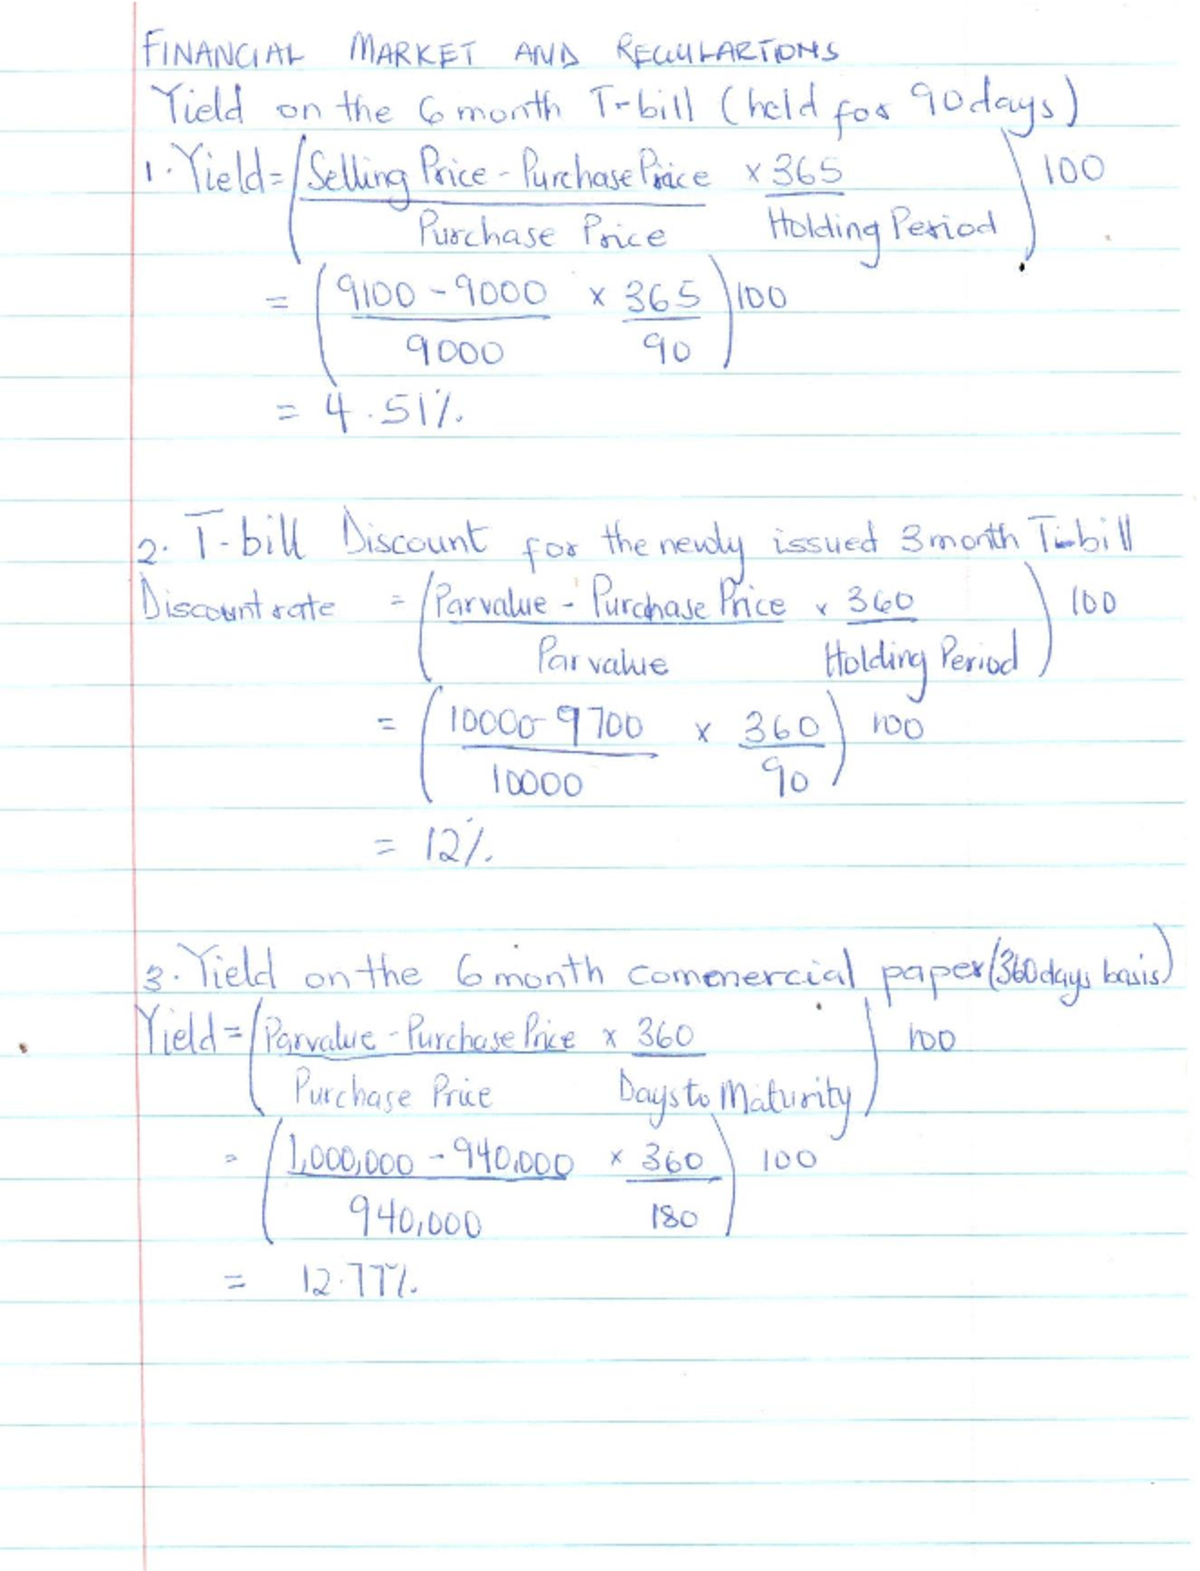 FINANCIAL MARKET AND REGULARTIONS
Yield on the 6 month T-bill (held for 90 days)
1. Yield = (Selling Price - Purchase Price x 365) 100
Purchase Price Holding Period
= (9100 - 9000 x 365) 100
9000 90
= 4.51%
2. T-bill Discount for the newly issued 3 month T-bill
Discount rate = (Parvalue - Purchase Price x 360) 100
Par value Holding Period
= (10000 - 9700 x 360) 100
10000 90
= 12%
3. Yield on the 6 month commercial paper (360 days basis)
Yield = (Parvalue - Purchase Price x 360) 100
Purchase Price Days to Maturity
= (1,000,000 - 940,000 x 360) 100
940,000 180
= 12.77%